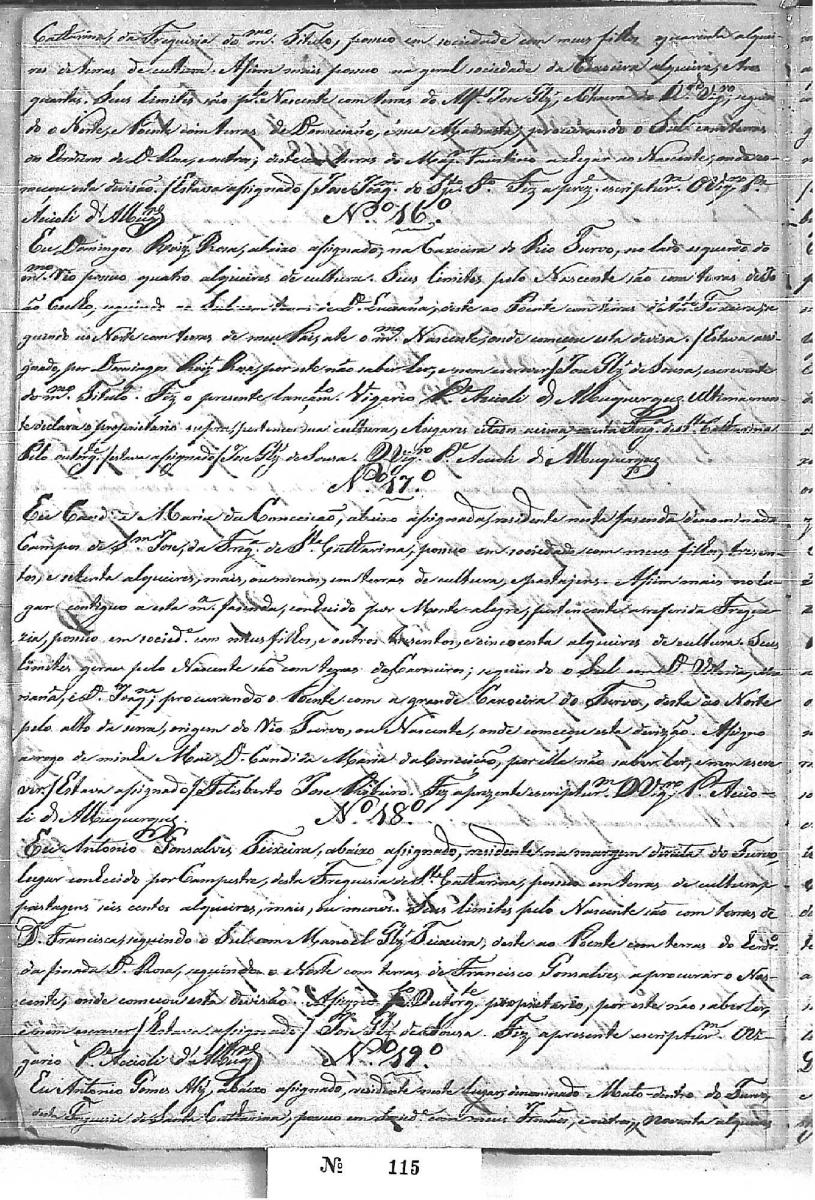 Catharina, da Freguesia do mmo. Titulo, possuo em sociedade com meus filhos quarenta alquei
res de terras de cultura. Assim mais possuo na geral sociedade da Caxoeira alqueire, e tres
quartas. Seus limites são plo. Nascente com terras do José Glz, e segui
do o Norte, e Poente com terras de Damacião, e sua Madrasta; procurando o Sul com terras
dos Erdeiros de D. Rosa, e outros; deste com terras do Faustino a chegar ao Nascente, onde co
meçou esta divisão. /Estava assignado/ José Joaq. do Fez a prezte. escriptura. O Vigro. Pe.
Acioli d'Albuq.
No. 16.o
Eu Domingos Roiz. Rosa, abaixo assignado, na Caxoeira do Rio Turvo, no lado esquerdo do
mmo. Rio possuo quatro alqueires de cultura. Seus limites pelo Nascente são com terras de Jo
ão Coelho, seguindo ao Sul com terras de D. Luciana, deste ao Poente com terras d' Teixeira, se
guindo ao Norte com terras de meu Pai, ate o mmo. Nascente, onde começou esta divisa. /Estava assi
gnado, por Domingos Roiz Rosa, por este não saber ler, e nem escrever/ José Glz de Sousa, escrevente
do mmo. Titulo. Fez o presente lançamto. Vigario Pe. Acioli d'Albuquerque. Ultimamen
te declara o proprietario supra, pertencer sua cultura, e lugares citados acima a esta Freg. de Sta. Catharina
Pelo outorgte. /estava assignado/ José Glz de Sousa. O Vigro. Pe. Acioli d'Albuquerque
No. 17.o
Eu Candida Maria da Conceição, abaixo assignada, residente nesta fazenda denominada
Campos de S. José, da Freg. de Sta. Catharina, possuo em sociedade com meus filhos, trezen
tos, e setenta alqueires, mais, ou menos, em terras de cultura, e pastajens. Assim mais no lu
gar contiguo a esta ma. fazenda, conhecido por Monte alegre, pertencente a referida Fregue
zia, possuo em sociede. com meus filhos, e outros trezentos, e cincoenta alqueires de cultura. Seus
limites geraes pelo Nascente são com terras dos Carneiros; seguindo o Sul com D.
e D. Joaqna; procurando o Poente com a grande Caxoeira do Turvo, desta ao Norte
pelo alto da serra, origem do Rio Turvo, ou Nascente, onde começou esta divisão. Assigno
a rogo de minha Mai D. Candida Maria da Conceicão, por ella não saber ler, e nem escre
ver/ Estava assignado/ Felisberto José Ribeiro. Fez a prezente escriptura. O Vigro. Pe. Accio
li d'Albuquerque.
No. 18.o
Eu Antonio Gonsalves Teixeira, abaixo assignado, residente na margem direita do Turvo
lugar conhecido por Campestre, desta Freguesia de Sta. Catharina, possuo em terras de cultura, e
pastagens seis centos alqueires, mais, ou menos. Seus limites pelo Nascente são com terras de
D. Francisca, seguindo o Sul com Manoel Glz Teixeira; deste ao Poente com terras do Erdro.
da finada D. Rosa, seguindo o Norte com terras de Francisco Gonsalves a procurar o Nas
cente, onde começou esta divisão. Assigno pelo outorgte. proprietario, por este não saber ler,
e nem escrever/ Estava assignado/ José Glz de Sousa. Fez a presente escriptura. O Vi
gario Pe. Accioli d'Albuq.
No. 19.o
Eu Antonio Gomes Alz, abaixo assignado, residente neste lugar, dinominado Mato-dentro do Turvo,
desta Freguesia de Santa Catharina, possuo em Sociede. com meus Irmãos, e outros, noventa alqueires
No 115